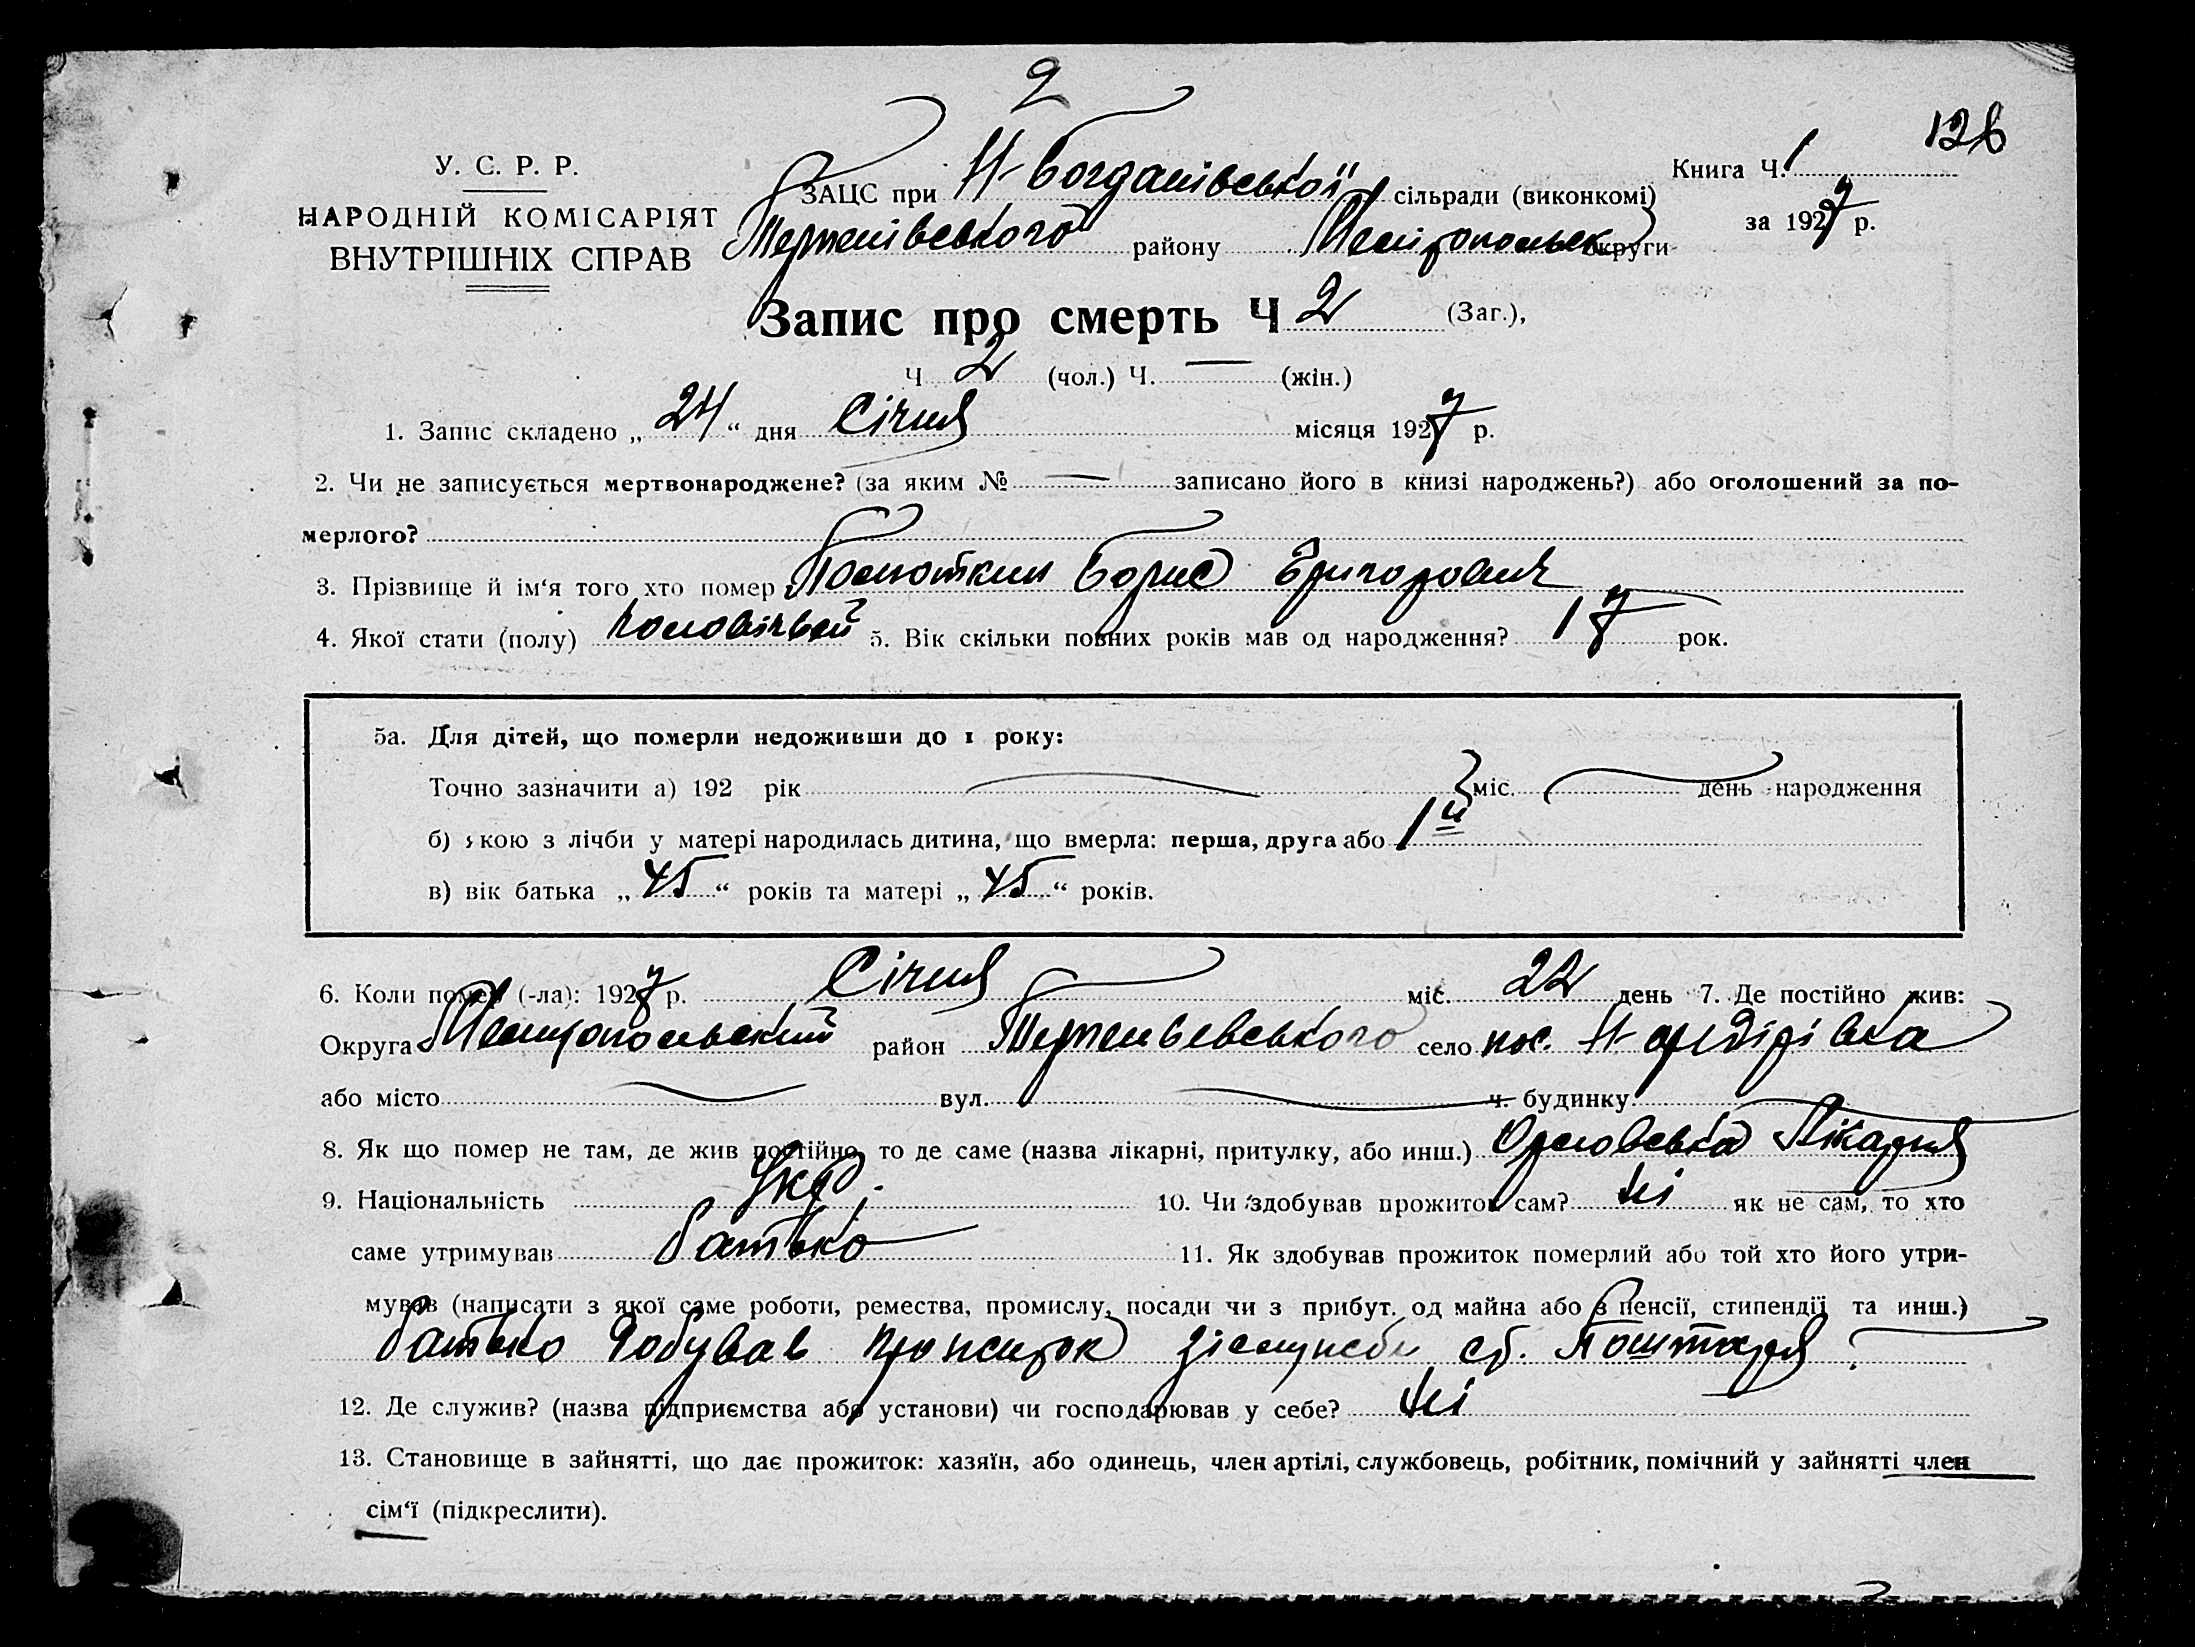 2
126
У. С. Р. Р.
НАРОДНІЙ КОМІСАРІЯТ
ВНУТРІШНІХ СПРАВ
ЗАЦС при Н-Богданівської сільради (виконкомі)
району Мелітопольськ округи
Книга Ч. 1
за 1927 р.
Запис про смерть Ч 2 (Заг.),
Ч 2 (чол.) Ч. — (жін.)
1. Запис складено „ 24 “ дня Січня місяця 1927 р.
2. Чи не записується мертвонароджене? (за яким № — записано його в книзі народжень?) або оголошений за по-
мерлого?
3. Прізвище й ім‘я того хто помер Борис Григорович
4. Якої стати (полу) 5. Вік скільки повних років мав од народження? 17 рок.
5а. Для дітей, що померли недоживши до 1 року:
Точно зазначити а) 192 рік міс. день народження
б) якою з лічби у матері народилась дитина, що вмерла: перша, друга або 1й
в) вік батька „ 45 “ років та матері „ 45 “ років.
6. Коли помер (-ла): 1927 р. Січня міс. 22 день 7. Де постійно жив:
Округа Мелітопольский район село пос. Н-
або місто вул. ч. будинку
8. Як що помер не там, де жив постійно, то де саме (назва лікарні, притулку, або инш.) Орловська Лікарня
9. Національність Укр. 10. Чи здобував прожиток сам? Ні як не сам, то хто
саме утримував батько 11. Як здобував прожиток померлий або той хто його утри-
мував (написати з якої саме роботи, ремества, промислу, посади чи з прибут. од майна або з пенсії, стипендії та инш.)
батько добував прожиток зіслужби Поштаря
12. Де служив? (назва підприємства або установи) чи господарював у себе? Ні
13. Становище в зайнятті, що дає прожиток: хазяїн, або одинець, член артілі, службовець, робітник, помічний у зайнятті член
сім‘ї (підкреслити).